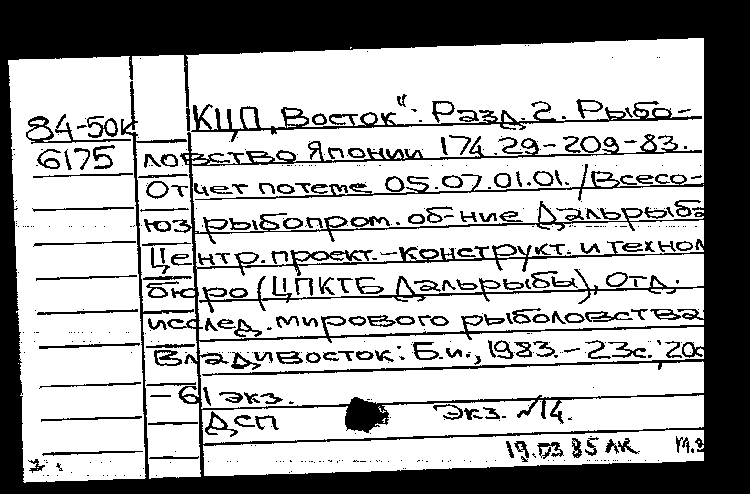 84-50К
6175
КЦП „Восток“: Разд. 2. Рыбо-
ловство Японии 174.29-209-83.
Отчет по теме 05.07.01.01./Всесо-
юз рыбопром. об-ние Дальрыба
Центр. проект.-конструкт. и технол
бюро (ЦПКТБ Дальрыбы), Отд.
исслед. мирового рыболовства
Владивосток: Б.и., 1983.-23с. 20с
-61 экз.
ДСП Экз. №14.
19.03 85 ЛК